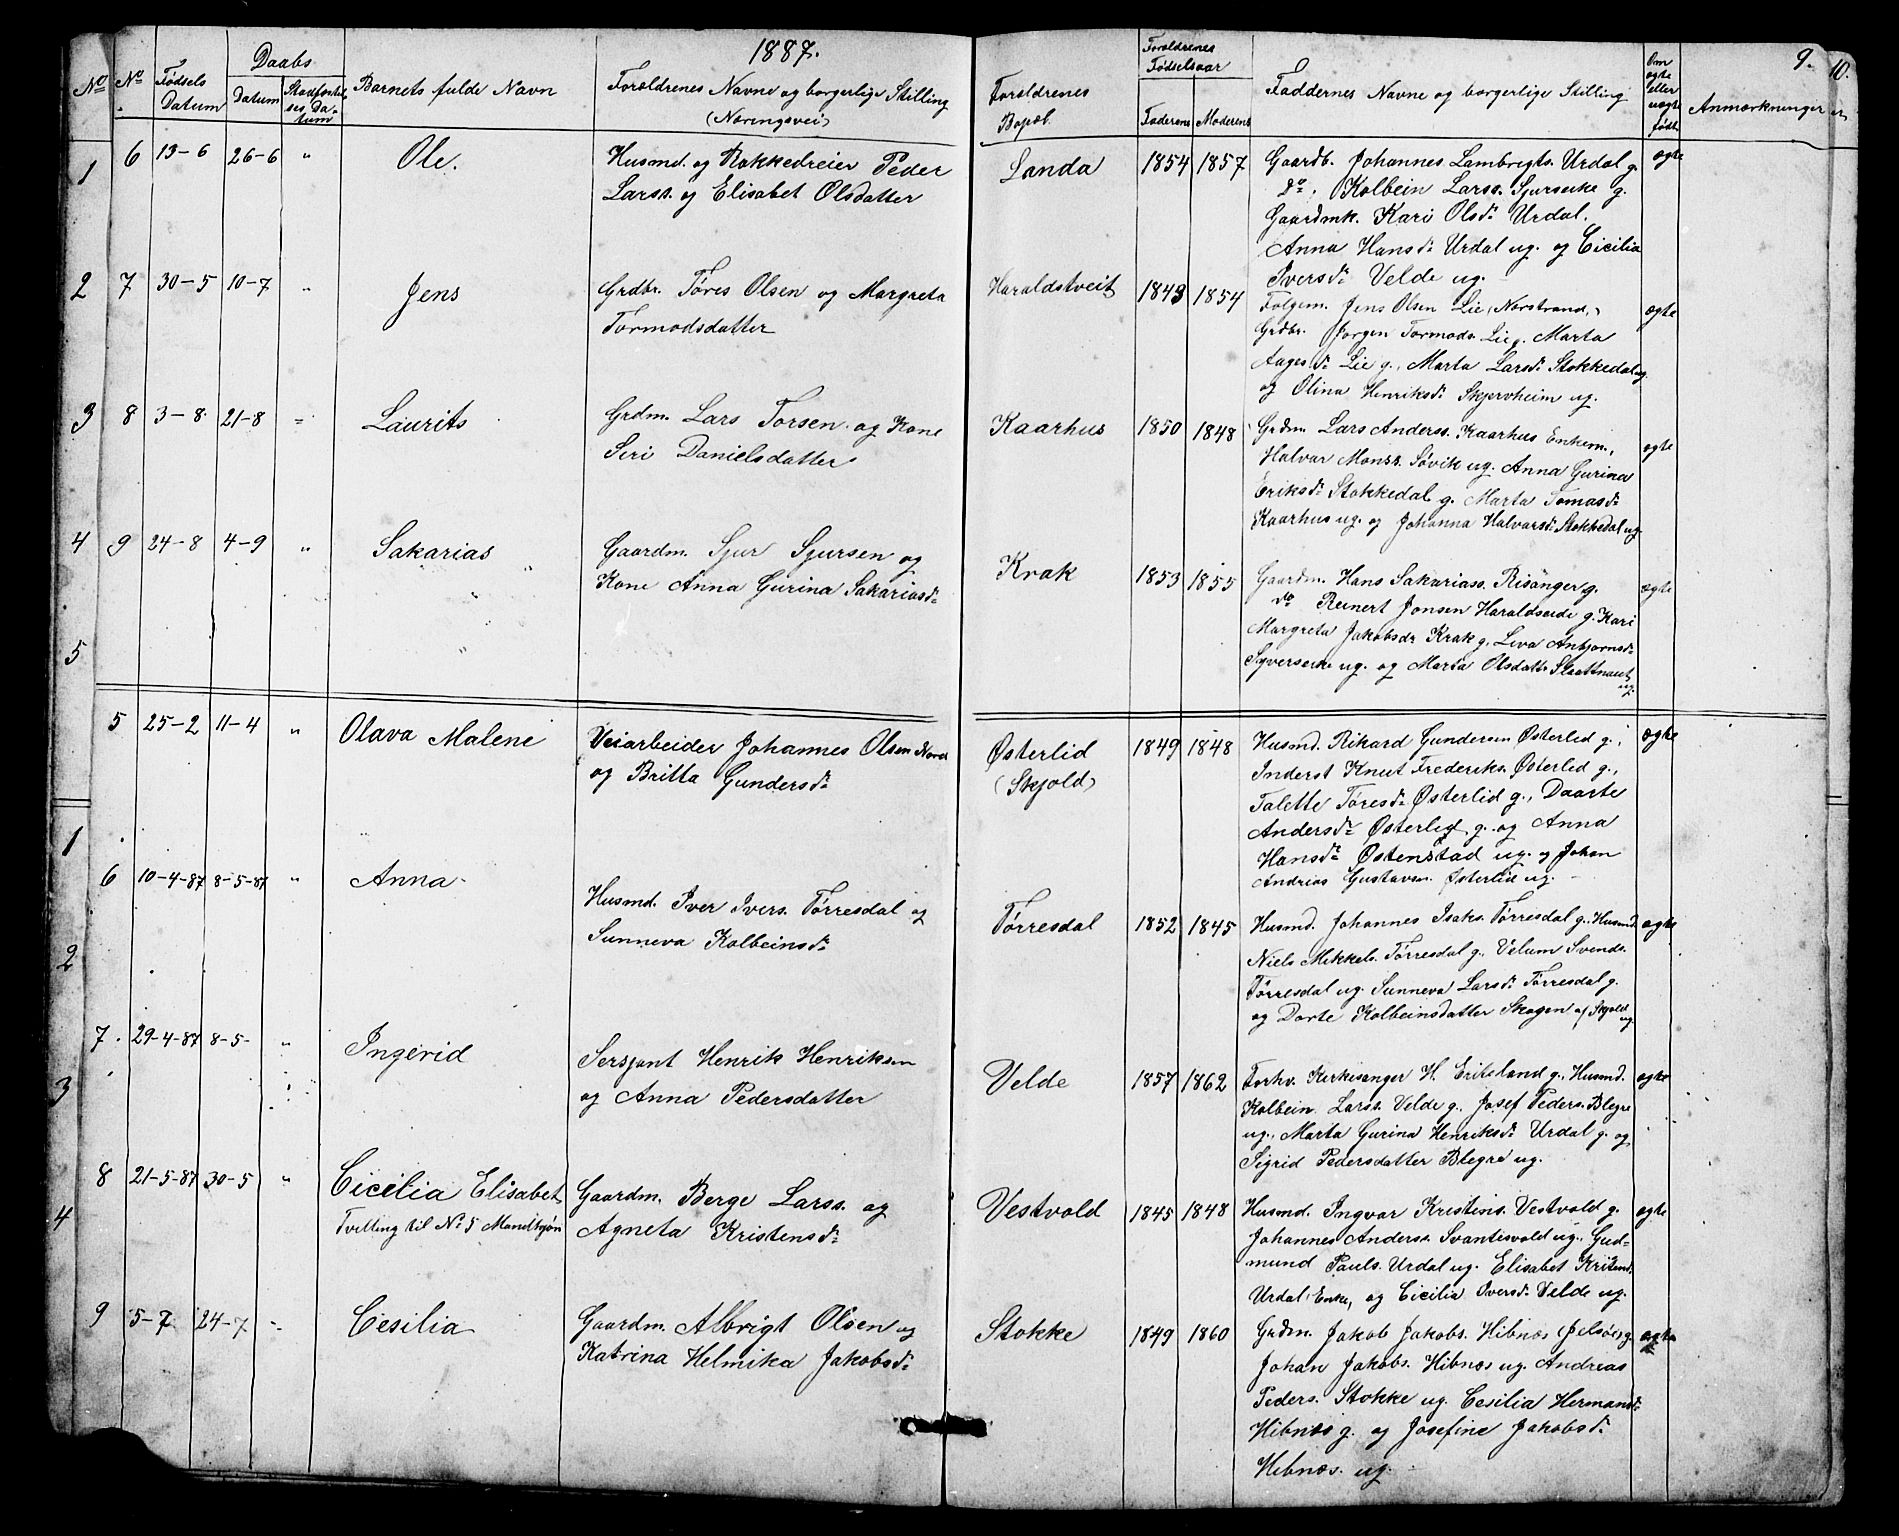 1887.
9.
10.
No
No
Fødsels Datum
Daabs
Datum
Stadfæstelses Datum
Barnets fulde Navn
Forældrenes Navne og borgerlige Stilling
(Næringsvei)
Forældrenes
Bopæl.
Forældrenes
Fødselsaar
Faderens
Moderens
Faddernes Navne og borgerlige Stilling
Om
ægte
eller
uægte
født
Anmærkninger
1
6 13-6 26-6 " Ole.
Husmd. og Rokkedreier Peder
Larss. og Elisabet Olsdatter
Landa 1854 1857
Gaardb. Johannes Lambregts. Urdal g.
Do, Kolbein Larss. Sjurseike g.
Gaardmk. Kari Olsdr Urdal.
Anna Hansdr Urdal ug. og Cicilia
Iversdr Velde ug.
ægte
2
7 30-5 10-7 " Jens
Grdbr. Tøres Olsen og Margreta
Tormodsdatter
Haraldstveit 1843 1854
Følgem. Jens Olsen Lie (Narstrand,)
Grdbr. Jørgen Tormods. Lie g. Marta
Aages dr Lie g., Marta Larsdr Stokkedal ug.
og Olina Henriksdr Skjervheim ug.
ægte
3
8 3-8 21-8 " Laurits
Grdm. Lars Torsen og Kone
Siri Danielsdatter
Kaarhus 1850 1848
Grdm. Lars Anderss. Kaarhus Enkem.,
Halvar Monss. Søvik ug. Anna Gurina
Eriksdr Stokkedal g. Marta Tomasdr
Kaarhus ug. og Johanna Halvarsdr Stokkedal ug.
ægte
4
9 24-8 4-9 " Sakarias
Gaardm. Sjur Sjursen og
Kone Anna Gurina Sakariasdr
Krak 1853 1855
Gaardm. Hans Sakariass. Risanger g.
do Reinert Jonsen Haraldseide g. Kari
Margreta Jakobsdr Krak g., Liva Anbjørnsdr
Syverseike ug. og Marta Olsdattr Slaattnaut
ug.
ægte
5
5 25-2 11-4 " Olava Malene
Veiarbeider Johannes Olsen Nord
og Britta Gundersdr
Østerlid
(Skjold)
1849 1848
Husmd. Rikard Gundersen Østerlid g.,
Inderst Knut Frederiks. Østerlid g.,
Talette Tøresdr Østerlid g., Daarte
Andersdr Østerlid g. og Anna
Hansdr Østenstad ug. og Johan
Andrias Gustavsen Østerlid ug.
ægte
1
6 10-4-87 8-5-87 " Anna
Husmd. Iver Ivers. Tørresdal og
Sunneva Kolbeinsdr
Tørresdal 1852 1845
Husmd. Johannes Isaks. Tørresdal g., Husmd.
Niels Mikkels. Tørresdal g., Velum Svends.
Tørresdal ug. Sunneva Larsdr Tørresdal g.
og Dorte Kolbeinsdatter Skogen af Skjold
ug.
ægte
2
7. 29-4-87 8-5- " Ingerid
Sersjant Henrik Henriksen
og Anna Pedersdatter
Velde 1857 1862
Forhv. Kirkesanger H. Erikeland g., Husmd.
Kolbein Larss. Velde g., Josef Peders. Blegre
ug., Marta Gurina Henriksdr Urdal g. og
Sigrid Pedersdatter Blegre ug.
ægte
3
8 21-5-87 30-5 " Cicelia Elisabet
Tvilling til No 5 Mandkjøn
Gaardm. Berge Larss. og
Agneta Kristensdr
Vestvold 1845 1848
Husmd. Ingvar Kristens. Vestvold g.
Johannes Anderss. Svantesvold ug., Gud-
mund Pauls. Urdal ug. Elisabet Kristensd.
Urdal, Enke, og Cicilia Iversdr Velde ug.
ægte
4
9 5-7 24-7 " Cesilia
Gaardm. Albrigt Olsen og
Katrina Helmika Jakobsdr
Stokke 1849 1860
Grdm. Jakob Jakobs. Hibnæs (Jelsø) g.
Johan Jakobs. Hibnæs ug. Andreas
Peders. Stokke ug. Cesilia Hermansdr
Hibnæs g. og Josefine Jakobsdr
Hibnæs. ug.
ægte